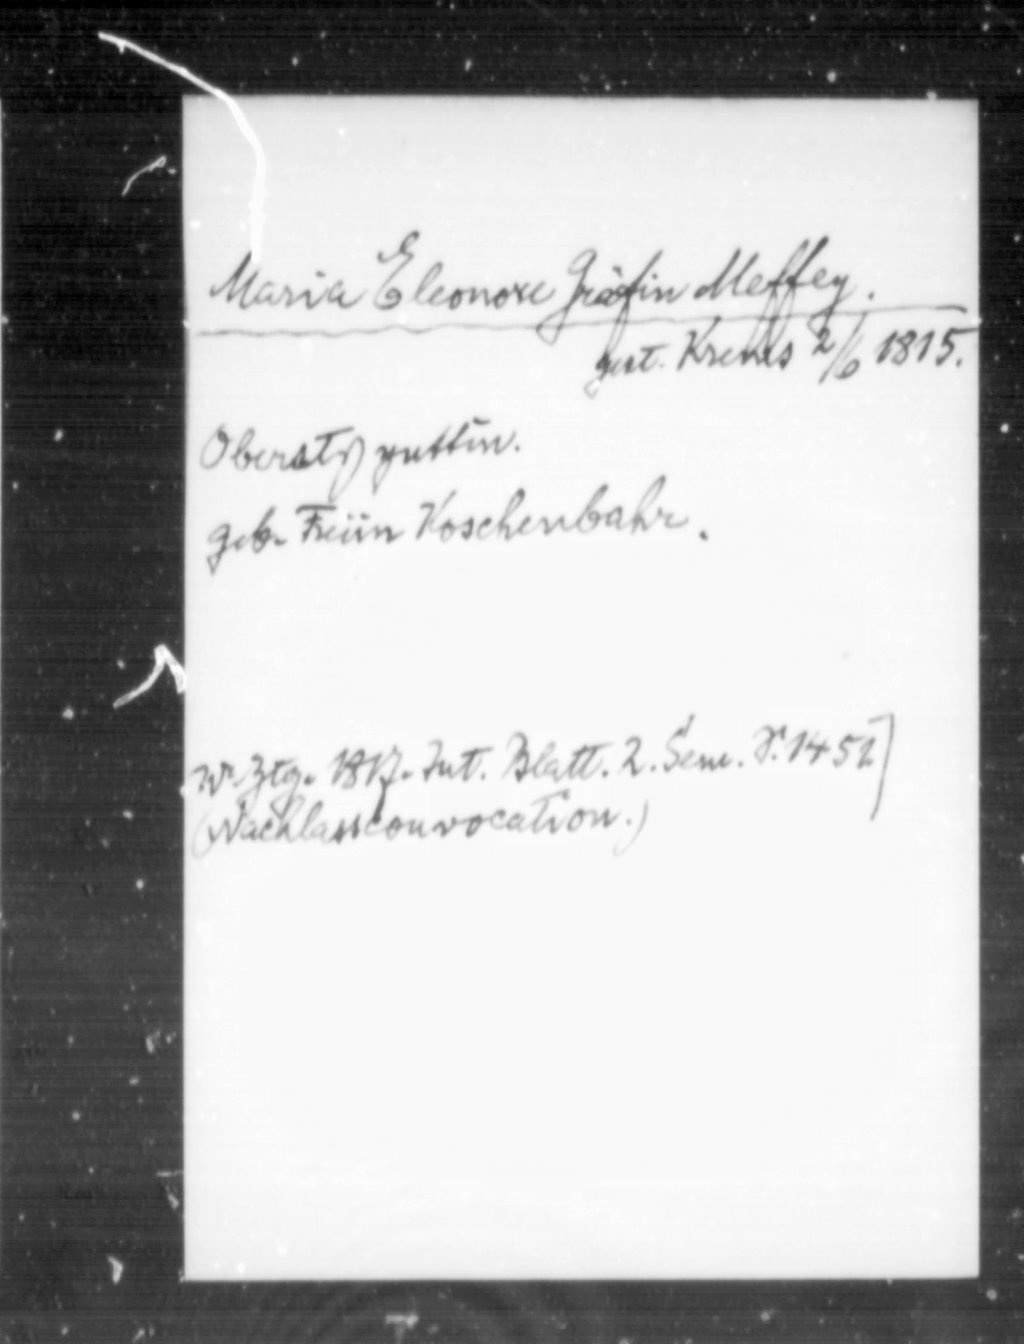 Maria Eleonore Gräfin Meffey.
gest. Krems 2/6 1815.
Oberst gattin.
geb. Freiin Koschenbahr.
W. Ztg. 1817. Int. Blatt. 2. Sem. S. 1451
(Nachlassconvocation.)